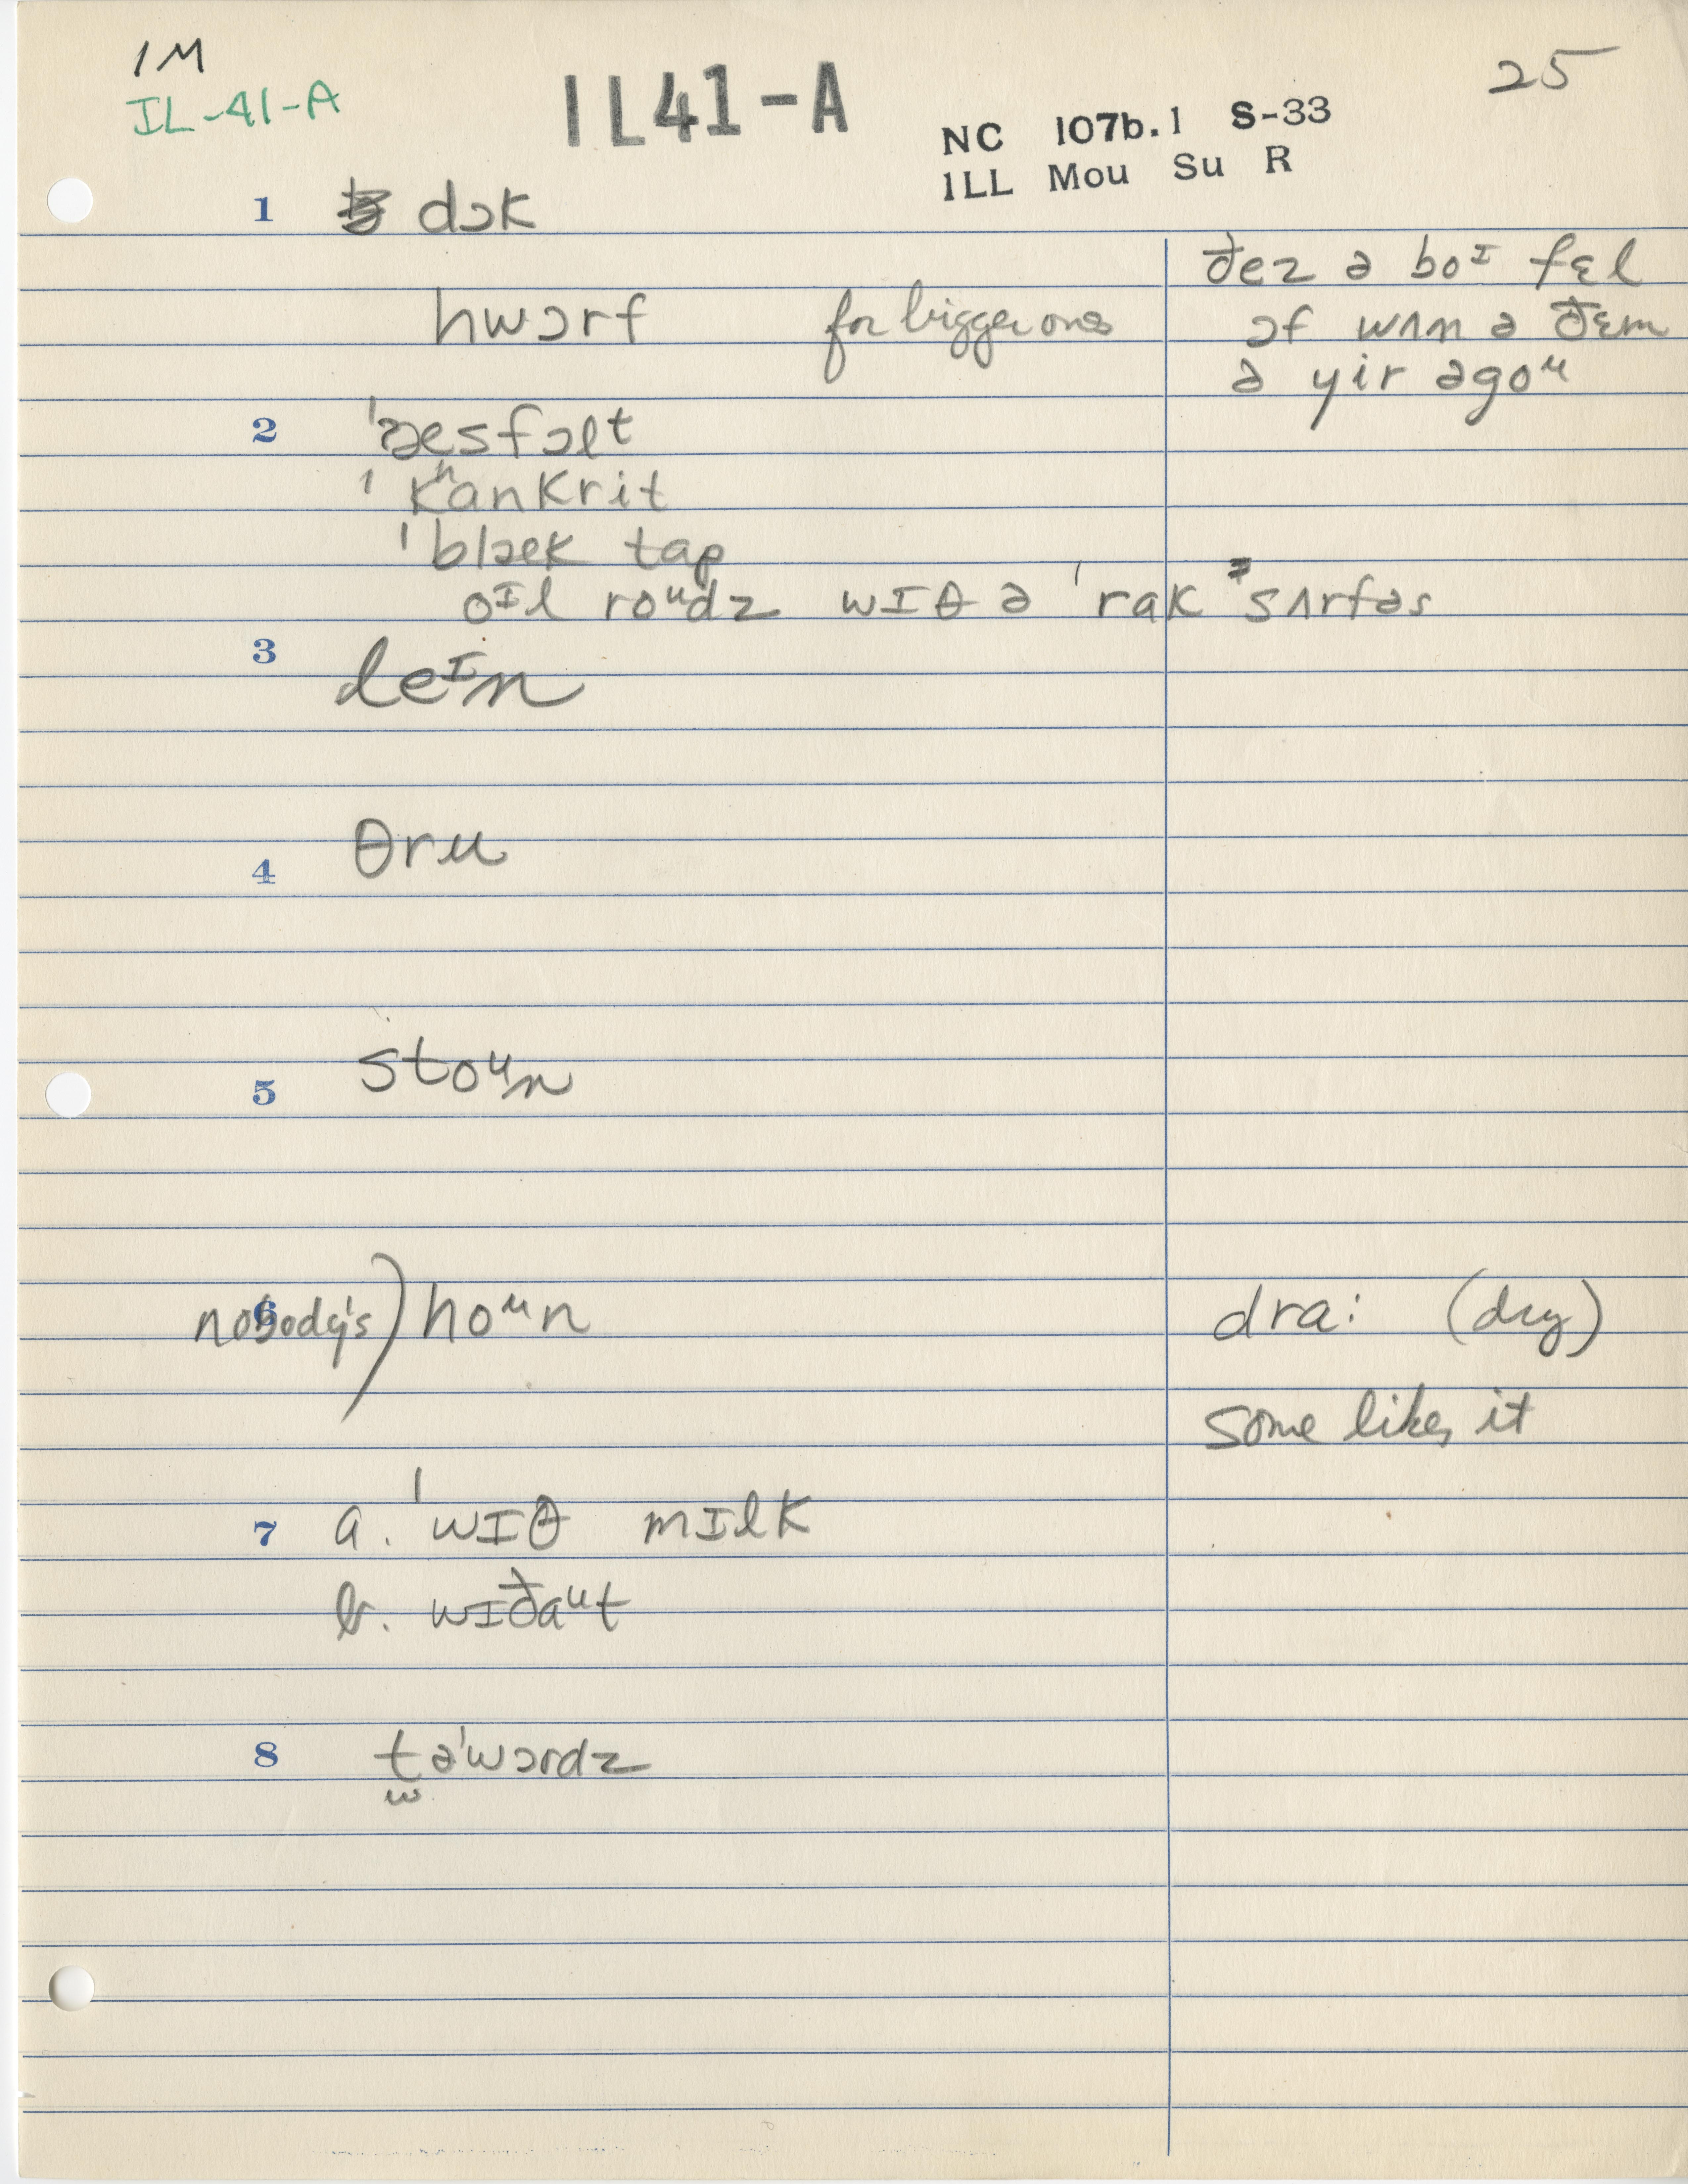 1M
IL-41-A
IL41-A
25
NC 107b.1 S-33
ILL Mou Su R
1 dɔk
hwɔrf for bigger ones
ðez ə boᴵ fɛl
ɔf wʌn ə ðɛm
ə yir əgoᵘ
2 ˈæsfɔlt
ˈkʰankrit
ˈblæk tap
oᴵl roᵘdz wɪθ ə ˈrak sʌrfəs
3 leᴵn
4 θru
5 stoᵘn
6 nobody's) hoᵘn
dra: (dry)
some likes it
7 a. ˈwɪθ mɪlk
b. wɪðaᵘt
8 təˈwɔrdz
w